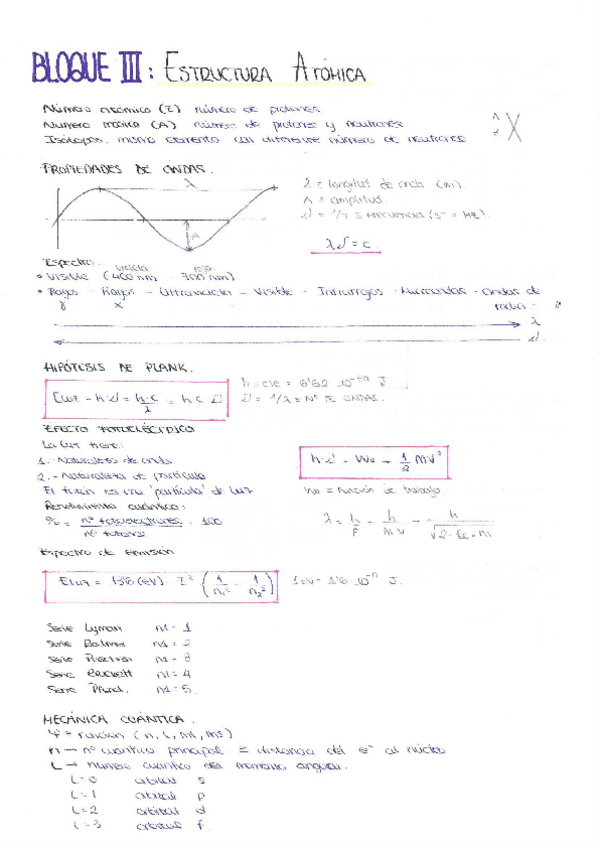 BLOQUE III: ESTRUCTURA ATÓMICA
Número atómico (Z) número de protones
Número másico (A) número de protones y neutrones
Isótopos: mismo elemento con diferente número de neutrones
A
Z X
PROPIEDADES DE ONDAS.
λ
A
λ = longitud de onda (m).
A = amplitud.
ν = 1/T = frecuencia (s⁻¹ = Hz).
λν = c.
Espectro:
violeta rojo
• Visible (400 nm - 700 nm)
• Rayos - Rayos - Ultravioleta - Visible - Infrarrojos - Microondas - Ondas de
γ x radio
λ
ν
HIPÓTESIS DE PLANK.
Eluz = h·ν = h·c/λ = h c ν̄
h = cte = 6'62 10⁻³⁴ J
ν̄ = 1/λ = Nº DE ONDAS.
EFECTO FOTOELÉCTRICO
La luz tiene:
1.- Naturaleza de onda
2.- Naturaleza de partícula
El fotón es una 'partícula' de luz
Rendimiento cuántico:
% = nº fotoelectrones / nº fotones · 100
h·ν - Wo = 1/2 mv²
Wo = función de trabajo
λ = h/P = h/m·v = h/√2·Ec·m
Espectro de emisión
Eluz = 13'6 (eV) · Z² (1/n₁² - 1/n₂²)
1eV = 1'6 10⁻¹⁹ J.
Serie Lyman n1 = 1
Serie Balmer n1 = 2
Serie Paschen n1 = 3
Serie Brackett n1 = 4
Serie Pfund. n1 = 5.
MECÁNICA CUÁNTICA.
Ψ = función (n, l, ml, ms)
n → nº cuántico principal = distancia del e⁻ al núcleo
L → número cuántico del momento angular.
L=0 orbital s
L=1 orbital p
L=2 orbital d
L=3 orbital f.